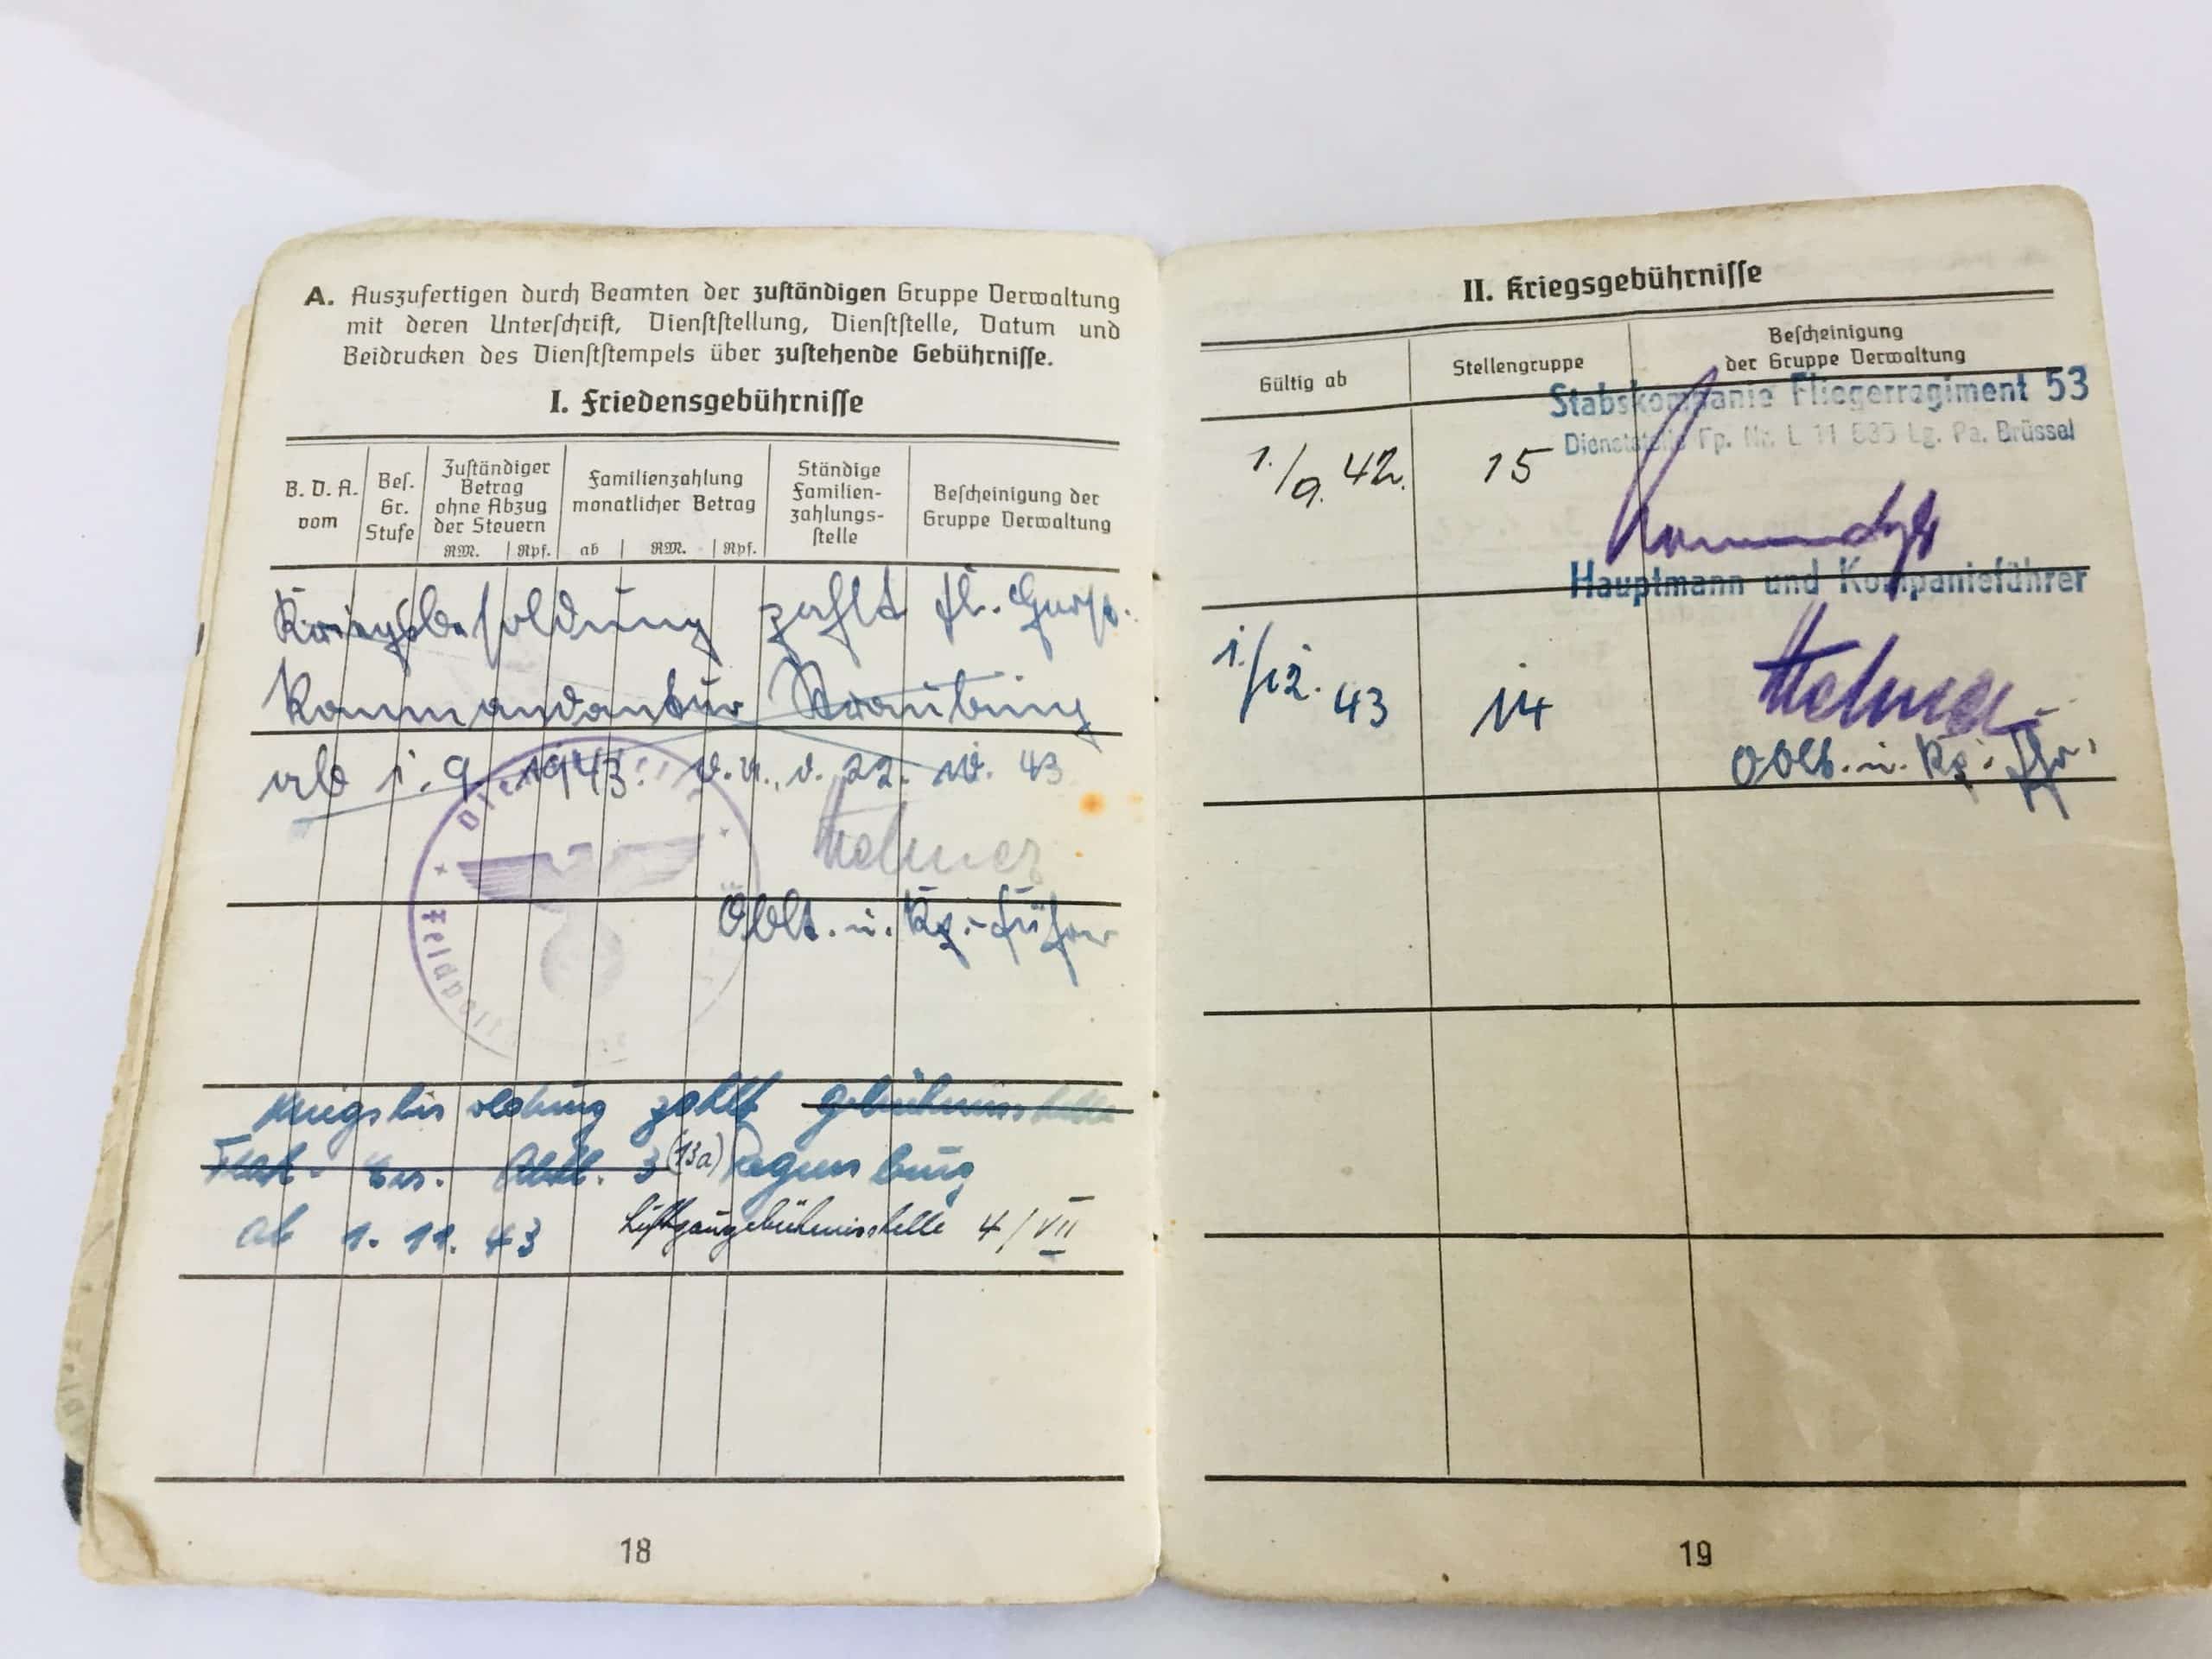 A. Auszufertigen durch Beamten der zuständigen Gruppe Verwaltung
mit deren Unterschrift, Dienststellung, Dienststelle, Datum und
Beidrucken des Dienststempels über zustehende Gebührnisse.
I. Friedensgebührnisse
B. D. A. vom
Bes. Gr. Stufe
Zuständiger Betrag ohne Abzug der Steuern
RM. Rpf.
Familienzahlung monatlicher Betrag
ab RM. Rpf.
Ständige Familien-zahlungs-stelle
Bescheinigung der Gruppe Verwaltung
Kriegsbesoldung zahlt Fl. Horst-
Kommandantur Straubing
ab 1. 9. 1943. 22. 43
Feldpost
Oblt. u. Kp.-Führer
Kriegsbesoldung zahlt Gebührnisstelle
Flak- Ers. Abtl. 3 (13a) Regensburg
ab 1. 11. 43 Luftgaugebührnisstelle 4/VII
18
II. Kriegsgebührnisse
Gültig ab
Stellengruppe
Bescheinigung
der Gruppe Verwaltung
Stabskompanie Fliegerregiment 53
Dienststelle Fp. Nr. L 11 Lg. Pa. Brüssel
1./9. 42. 15
Hauptmann und Kompanieführer
1./12. 43 14
Oblt. u. Kp. Fhr.
19